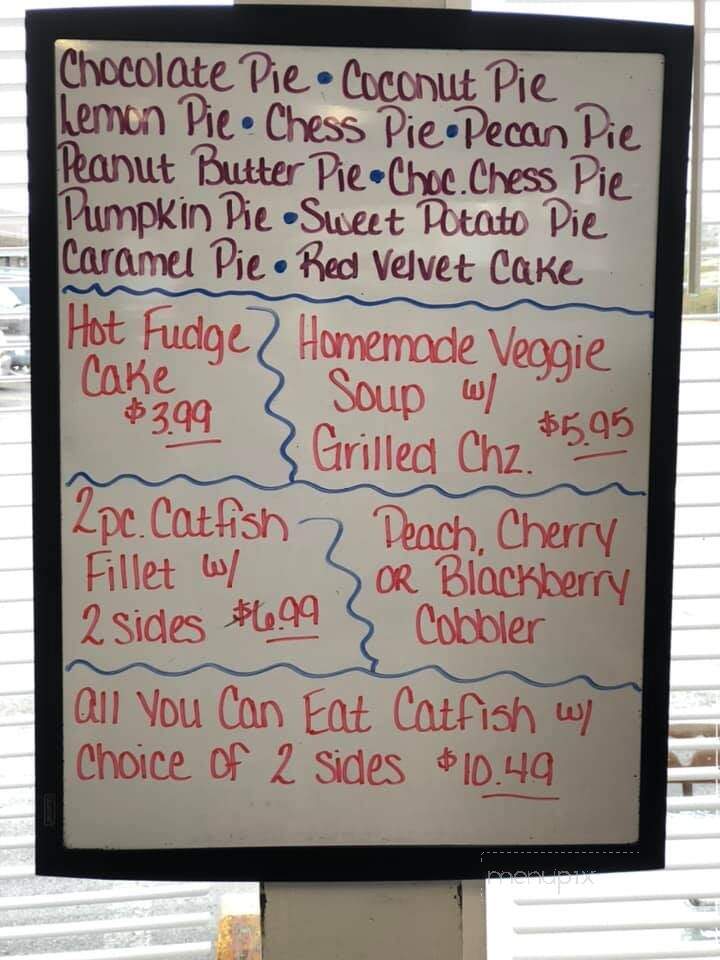 Chocolate Pie • Coconut Pie
Lemon Pie • Chess Pie • Pecan Pie
Peanut Butter Pie • Choc. Chess Pie
Pumpkin Pie • Sweet Potato Pie
Caramel Pie • Red Velvet Cake
Hot Fudge
Cake
$3.99
Homemade Veggie
Soup w/
Grilled Chz. $5.95
2pc. Catfish
Fillet w/
2 sides $6.99
Peach, Cherry
OR Blackberry
Cobbler
All You Can Eat Catfish w/
Choice of 2 sides $10.49
menupix